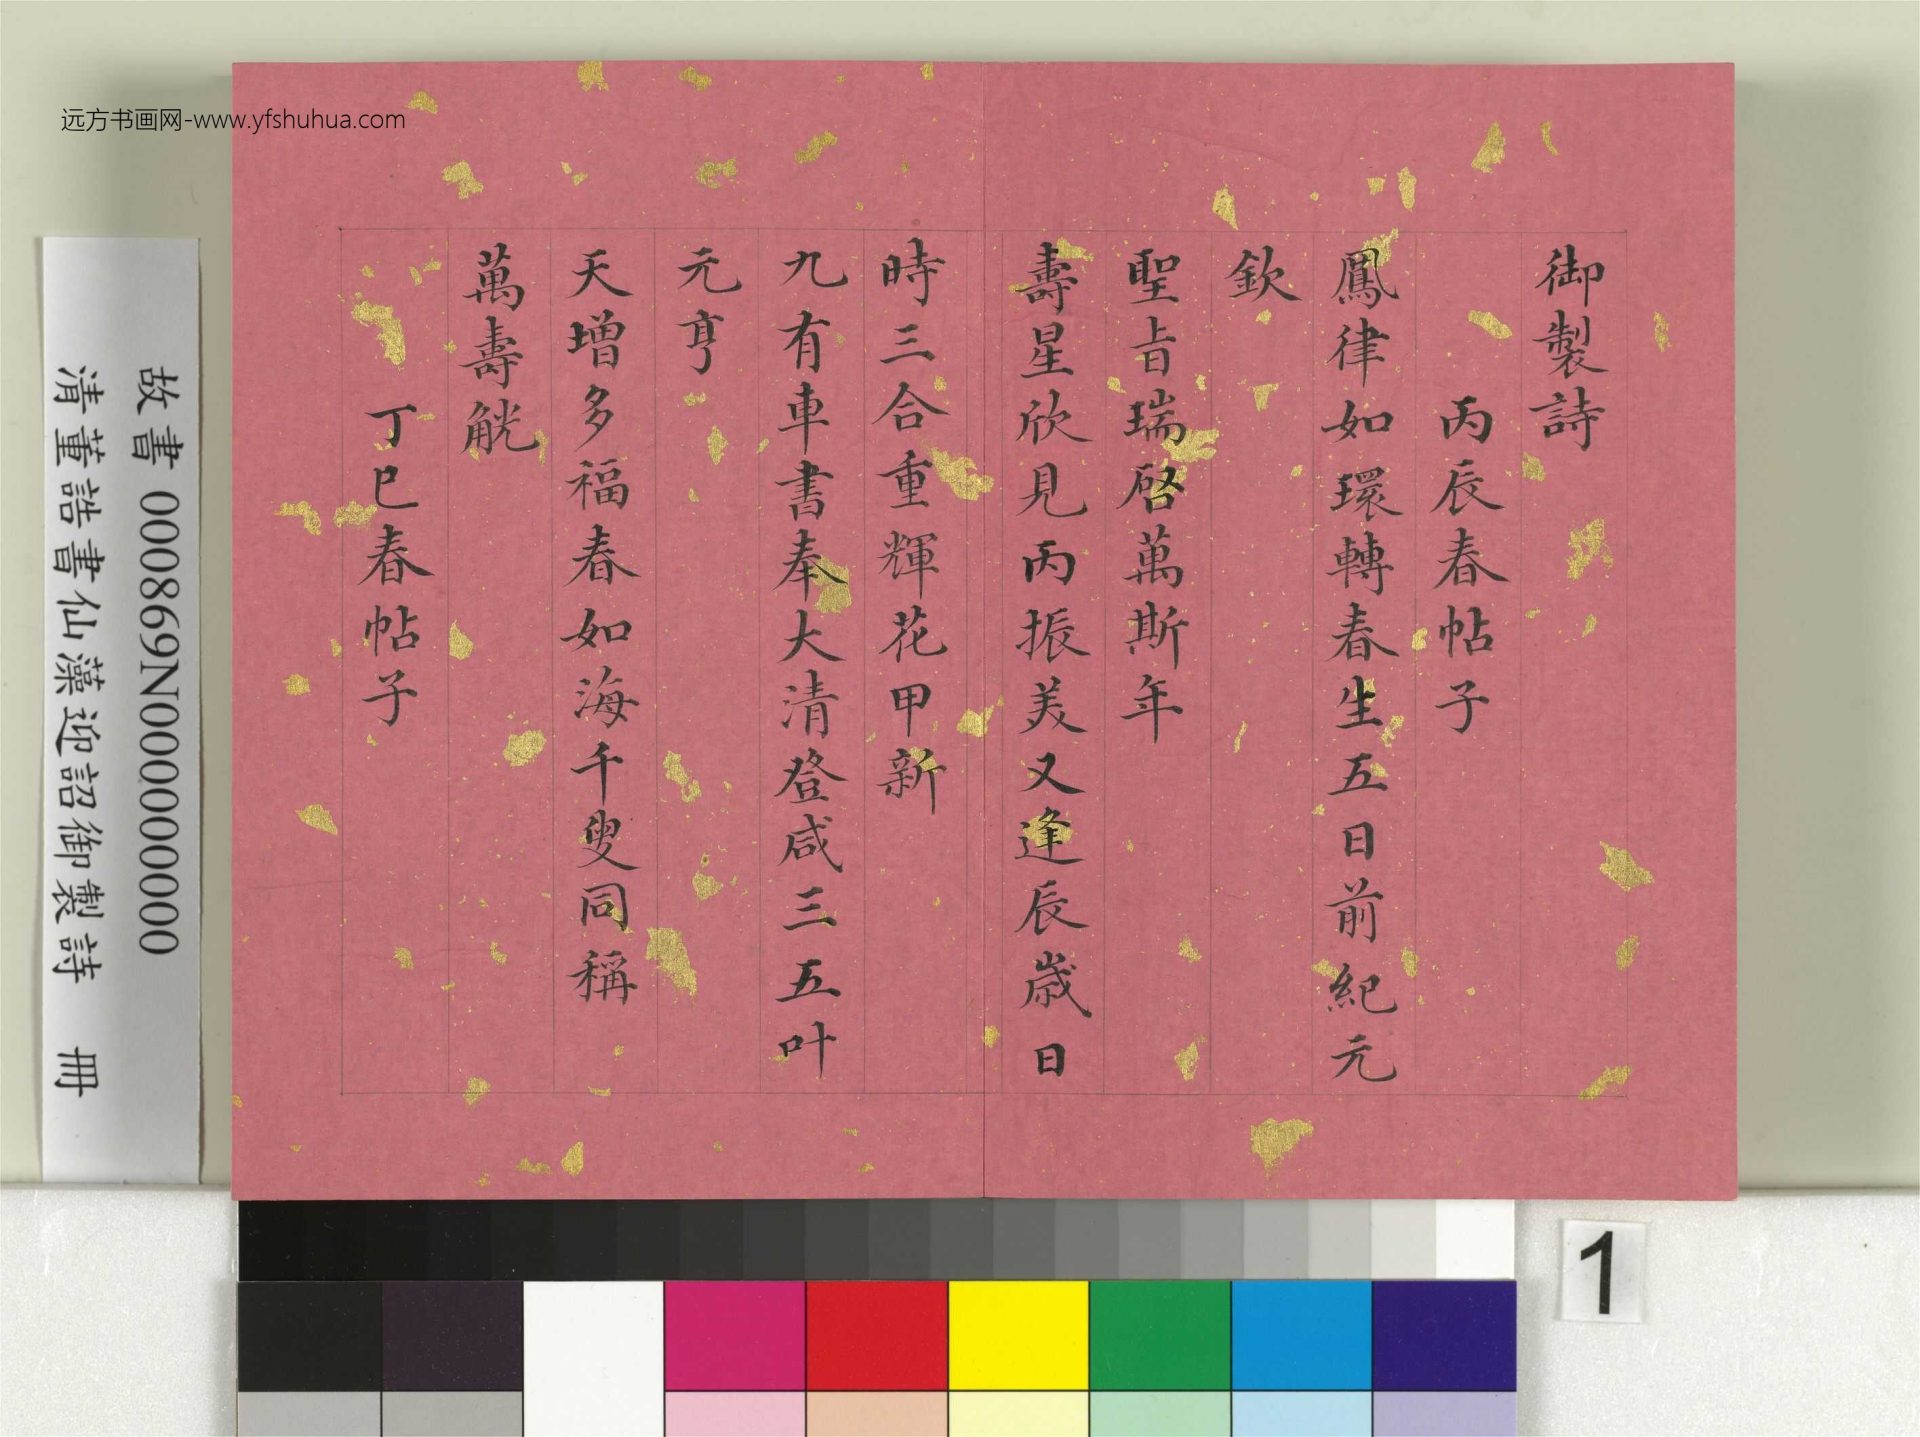 远方书画网-www.yfshuhua.com
御製詩
丙辰春帖子
鳳律如環轉春生五日前紀元
欽
聖㫖瑞啓萬斯年
壽星欣見丙振美又逢辰歲日
時三合重輝花甲新
九有車書奉大清登咸三五叶
元亨
天增多福春如海千叟同稱
萬壽觥
丁巳春帖子
故書 000869N000000000
清董誥書仙藻迎詔御製詩 冊
1